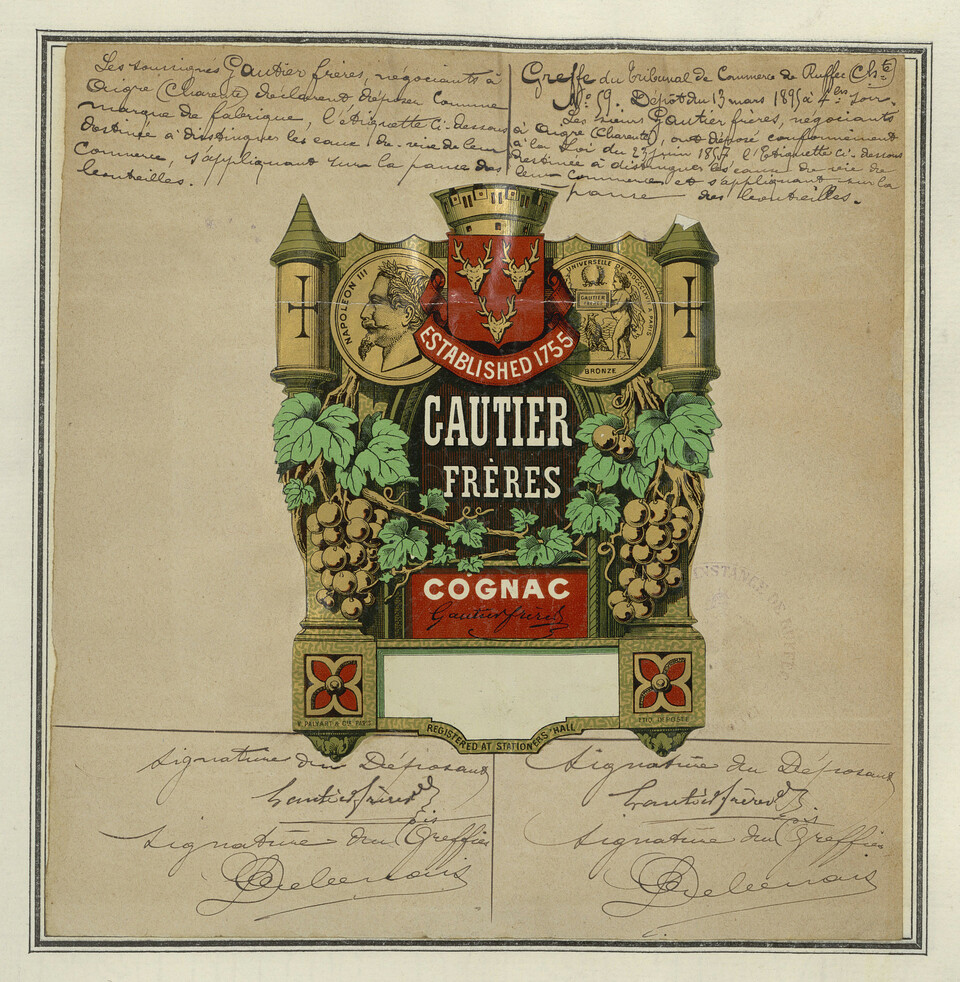 Les soussignés Gautier frères, négociants à
Aigre (Charente) déclarent déposer comme
marque de fabrique, l'étiquette ci-dessous
destinée à distinguer les eaux-de-vie de leur
commerce, s'appliquant sur la panse des
bouteilles.
Greffe du Tribunal de Commerce de Ruffec (Chte)
No 59. Dépôt du 13 mars 1895 à 4 hrs soir.
Les sieurs Gautier frères, négociants
à Aigre (Charente), ont déposé conformément
à la Loi du 23 juin 1857 l'Etiquette ci-dessous
destinée à distinguer les eaux de vie de
leur commerce et s'appliquant sur la
panse des bouteilles.
NAPOLEON III
UNIVERSELLE DE A PARIS
GAUTIER
FRÈRES
BRONZE
ESTABLISHED 1755
GAUTIER
FRÈRES
COGNAC
Gautier frères
REGISTERED AT STATIONERS' HALL
INSTANCE DE
Signature du Déposant
Gautier frères
Signature du Greffier
Signature du Déposant
Gautier frères
Signature du Greffier